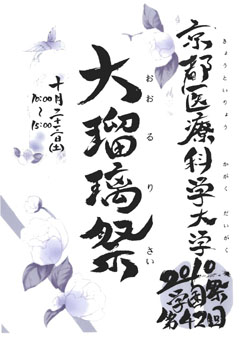 京都医療科学大学
きょうといりょう
かがくだいがく
2010
学園祭
第42回
大瑠璃祭
おおるりさい
十月二十三日(土)
10:00
~
15:00